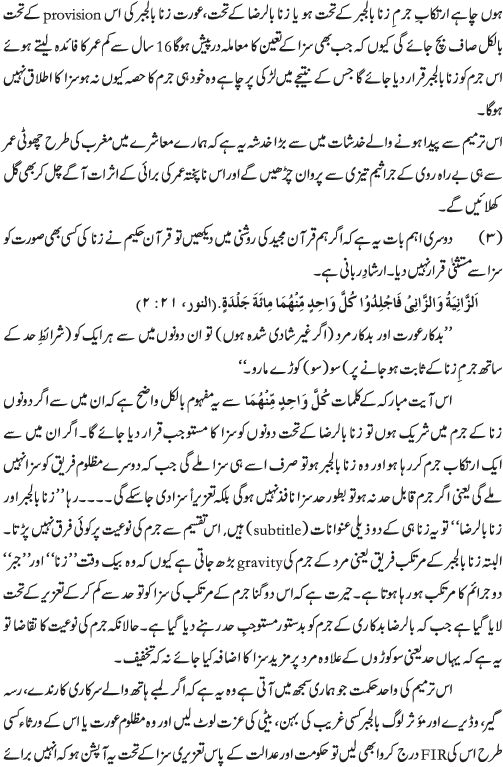 ہوں چاہے ارتکابِ جرم زنا بالجبر کے تحت ہو یا زنا بالرضا کے تحت، عورت زنا بالجبر کی اس provision کے تحت
بالکل صاف بچ جائے گی کیوں کہ جب بھی سزا کے تعین کا معاملہ درپیش ہوگا 16 سال سے کم عمر کا فائدہ لیتے ہوئے
اس جرم کو زنا بالجبر قرار دیا جائے گا جس کے نتیجے میں لڑکی پر چاہے وہ خود ہی جرم کا حصہ کیوں نہ ہو سزا کا اطلاق نہیں
ہوگا۔
اس ترمیم سے پیدا ہونے والے خدشات میں سے بڑا خدشہ یہ ہے کہ ہمارے معاشرے میں مغرب کی طرح چھوٹی عمر
سے ہی بے راہ روی کے جراثیم تیزی سے پروان چڑھیں گے اور اس ناپختہ عمر کی برائی کے اثرات آگے چل کر بھی گل
کھلائیں گے۔
(۳) دوسری اہم بات یہ ہے کہ اگر ہم قرآن مجید کی روشنی میں دیکھیں تو قرآن حکیم نے زنا کی کسی بھی صورت کو
سزا سے مستثنیٰ قرار نہیں دیا۔ ارشادِ ربانی ہے۔
اَلزَّانِیَةُ وَالزَّانِیْ فَاجْلِدُوْا کُلَّ وَاحِدٍ مِّنْهُمَا مِائَةَ جَلْدَةٍ. (النور، ۲۱ : ۲)
’’بدکار عورت اور بدکار مرد (اگر غیر شادی شدہ ہوں) تو ان دونوں میں سے ہر ایک کو (شرائطِ حد کے
ساتھ جرمِ زنا کے ثابت ہو جانے پر) سو (سو) کوڑے مارو۔‘‘
اس آیت مبارکہ کے کلمات کُلَّ وَاحِدٍ مِّنْهُمَا سے یہ مفہوم بالکل واضح ہے کہ ان میں سے اگر دونوں
زنا کے جرم میں شریک ہوں تو زنا بالرضا کے تحت دونوں کو سزا کا مستوجب قرار دیا جائے گا۔ اگر ان میں سے
ایک ارتکاب جرم کر رہا ہو اور وہ زنا بالجبر ہو تو صرف اسے ہی سزا ملے گی جب کہ دوسرے مظلوم فریق کو سزا نہیں
ملے گی یعنی اگر جرم قابل حد نہ ہو تو بطور حد سزا نافذ نہیں ہوگی بلکہ تعزیراً سزا دی جاسکے گی۔۔۔۔ رہا ’’زنا بالجبر اور
زنا بالرضا‘‘ تو یہ زنا ہی کے دو ذیلی عنوانات (subtitle) ہیں، اس تقسیم سے جرم کی نوعیت پر کوئی فرق نہیں پڑتا۔
البتہ زنا بالجبر کے مرتکب فریق یعنی مرد کے جرم کی gravity بڑھ جاتی ہے کیوں کہ وہ بیک وقت ’’زنا‘‘ اور ’’جبر‘‘
دو جرائم کا مرتکب ہو رہا ہوتا ہے۔ حیرت ہے کہ اس دوگنا جرم کے مرتکب کی سزا کو تو حد سے کم کر کے تعزیر کے تحت
لایا گیا ہے جب کہ بالرضا بدکاری کے جرم کو بدستور مستوجبِ حد رہنے دیا گیا ہے۔ حالانکہ جرم کی نوعیت کا تقاضا تو
یہ ہے کہ یہاں حد یعنی سو کوڑوں کے علاوہ مرد پر مزید سزا کا اضافہ کیا جائے نہ کہ تخفیف۔
اس ترمیم کی واحد حکمت جو ہماری سمجھ میں آتی ہے وہ یہ ہے کہ اگر لمبے ہاتھ والے سرکاری کارندے، رسہ
گیر، وڈیرے اور مؤثر لوگ بالجبر کسی غریب کی بہن، بیٹی کی عزت لوٹ لیں اور وہ مظلوم عورت یا اس کے ورثاء کسی
طرح اس کی FIR درج کروا بھی لیں تو حکومت اور عدالت کے پاس تعزیری سزا کے تحت یہ آپشن ہو کہ انہیں برائے